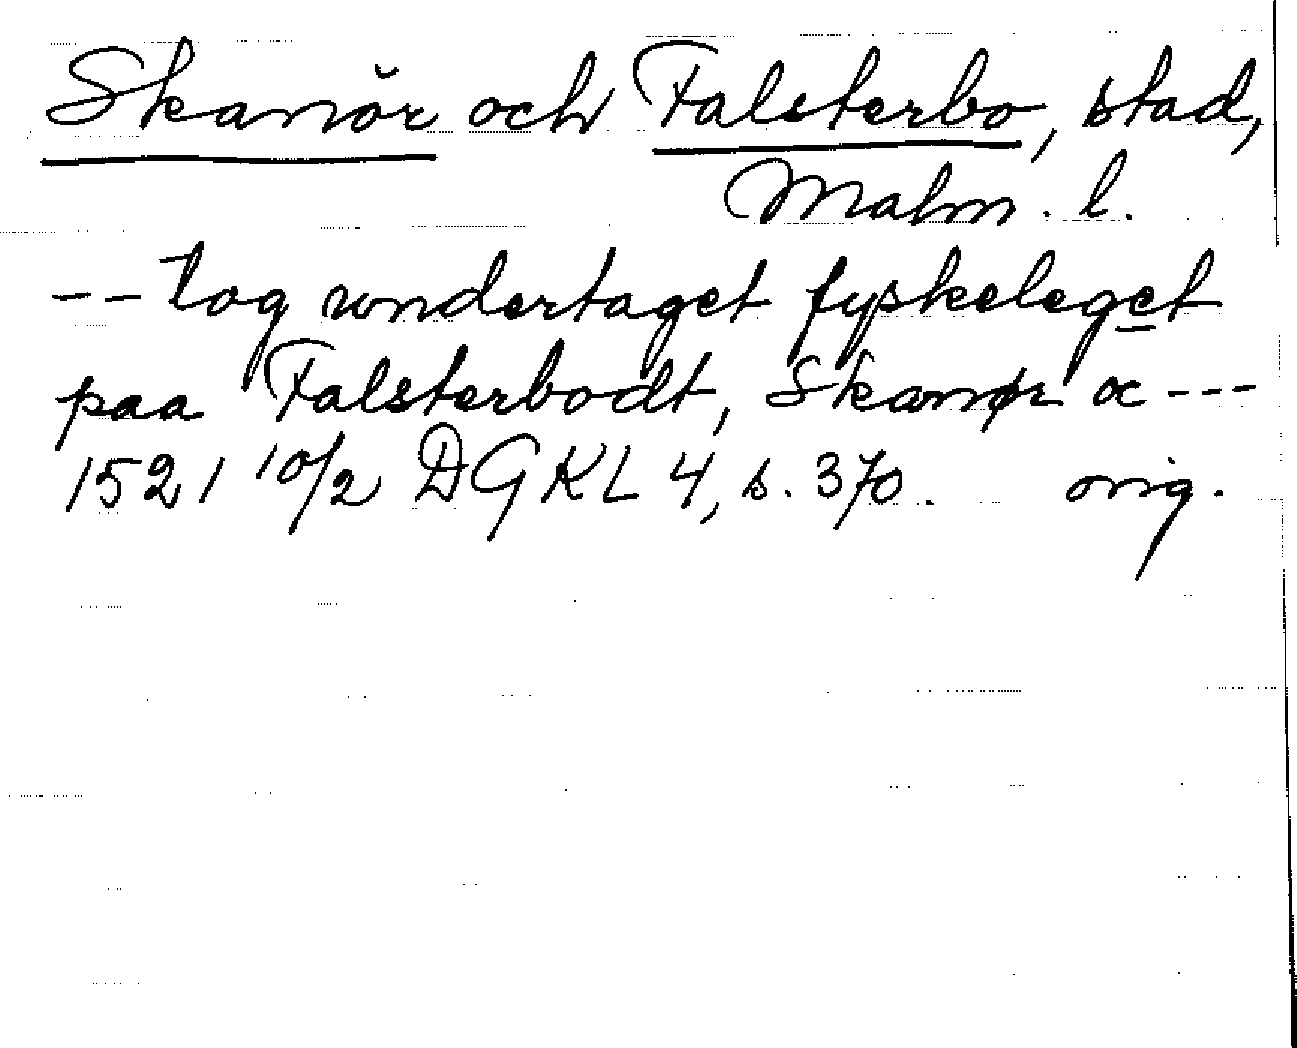 Skanör och Falsterbo, stad,
Malm. l.
-- tog wndertaget fyskeleget
paa Falsterbodt, Skanør oc ---
1521 10/2 DGKL 4, s. 370. orig.